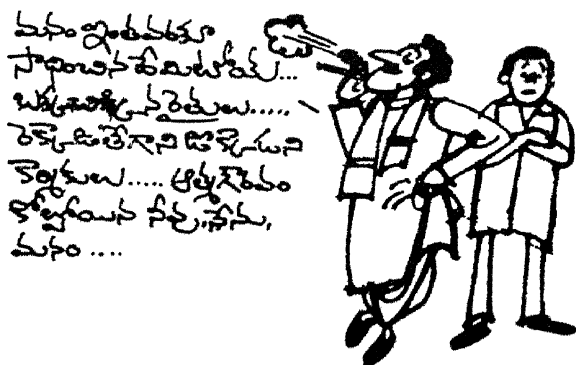 మనం ఇంతవరకూ
సాధించిన దేమిటోయ్...
బక్కచిక్కిన రైతులు.....
రెక్కాడితేగాని డొక్కాడని
కార్మికులు..... ఆత్మగౌరవం
కోల్పోయిన నేను, నేను,
మనం ....